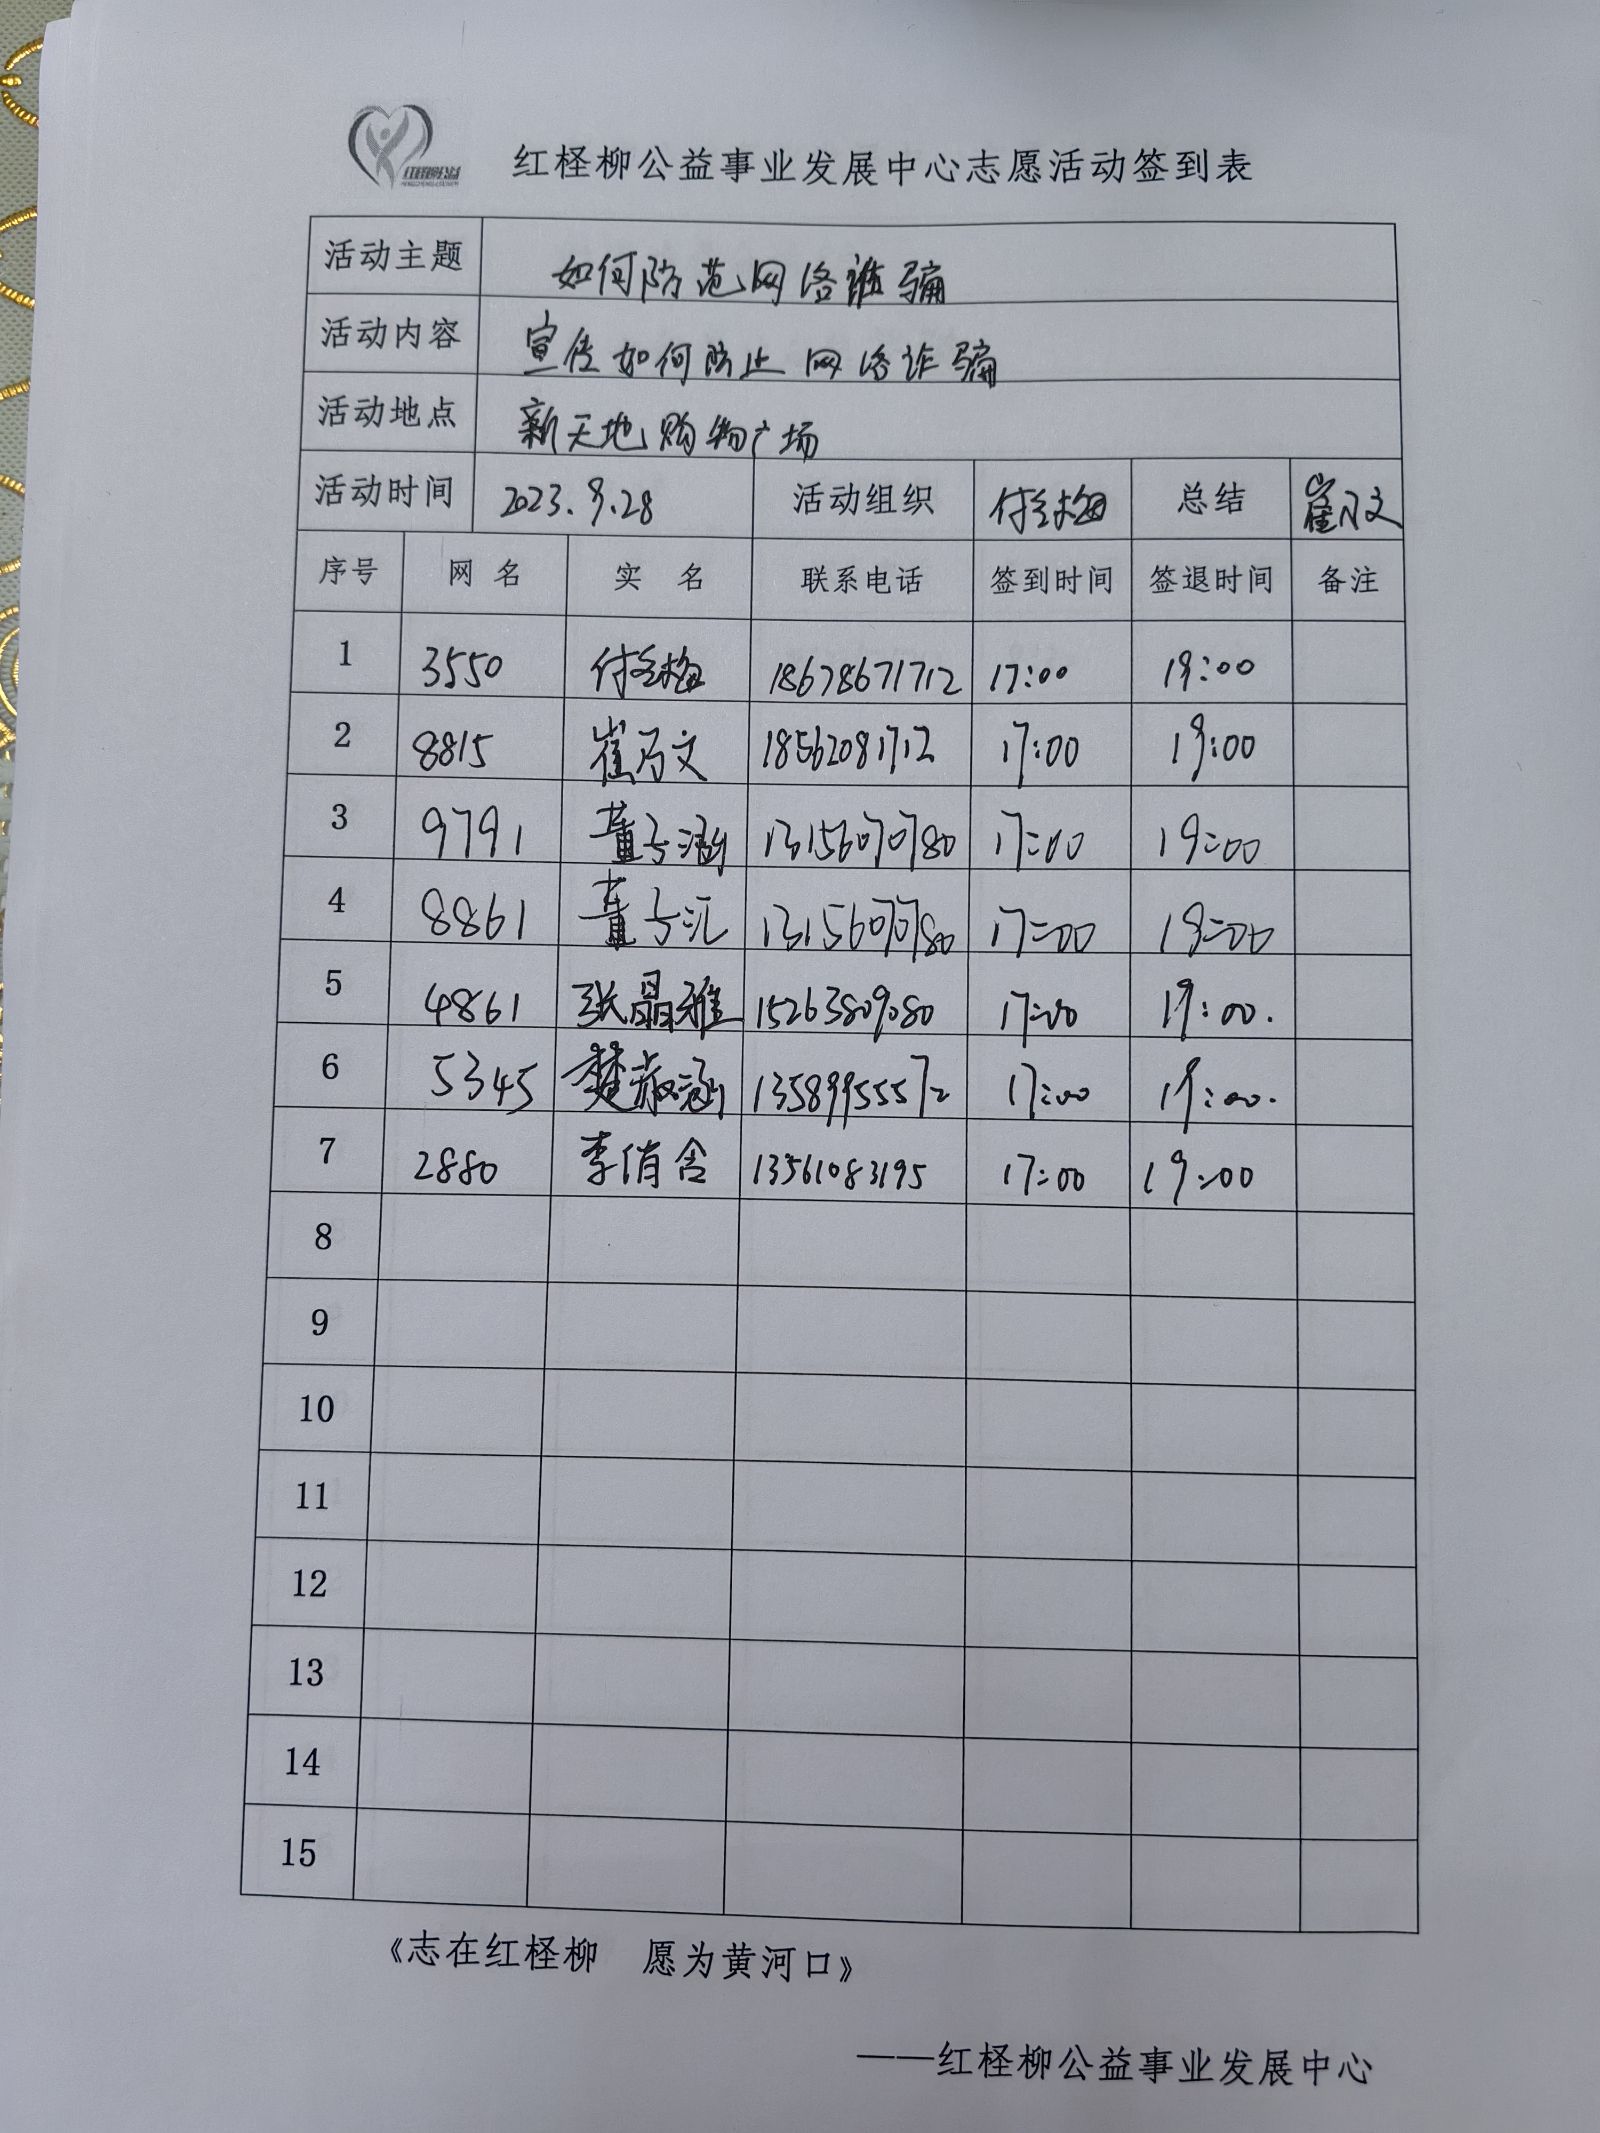 红柽柳公益事业发展中心志愿活动签到表
活动主题 如何防范网络诈骗
活动内容 宣传如何防止网络诈骗
活动地点 新天地购物广场
活动时间 2023.9.28 活动组织 付梅 总结 崔乃文
序号 网名 实名 联系电话 签到时间 签退时间 备注
1 3550 付梅 18678671712 17:00 19:00
2 8815 崔乃文 18562081712 17:00 19:00
3 9791 董子涵 13156070780 17:00 19:00
4 8861 董子汇 13156070780 17:00 19:00
5 4861 张晶雅 15263809080 17:00 19:00.
6 5345 楚淑涵 13589955572 17:00 19:00.
7 2880 李俏含 13561083195 17:00 19:00
8
9
10
11
12
13
14
15
《志在红柽柳 愿为黄河口》
——红柽柳公益事业发展中心